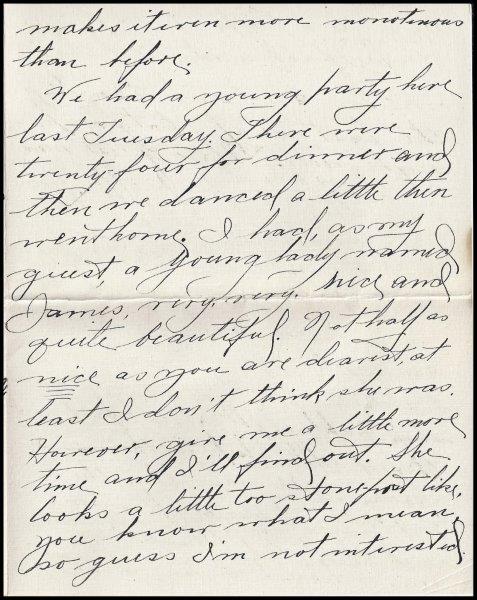 makes it even more monotinous
than before.
We had a young party here
last Tuesday. There were
twenty-four for dinner and
then we danced a little then
went home. I had, as my
guest, a young lady named
James, very, very, nice and
quite beautiful. Not half as
nice as you are dearest, at
least I don't think she was.
However, give me a little more
time and I'll find out. She
looks a little too stonepost like,
you know what I mean,
so guess I'm not interested.